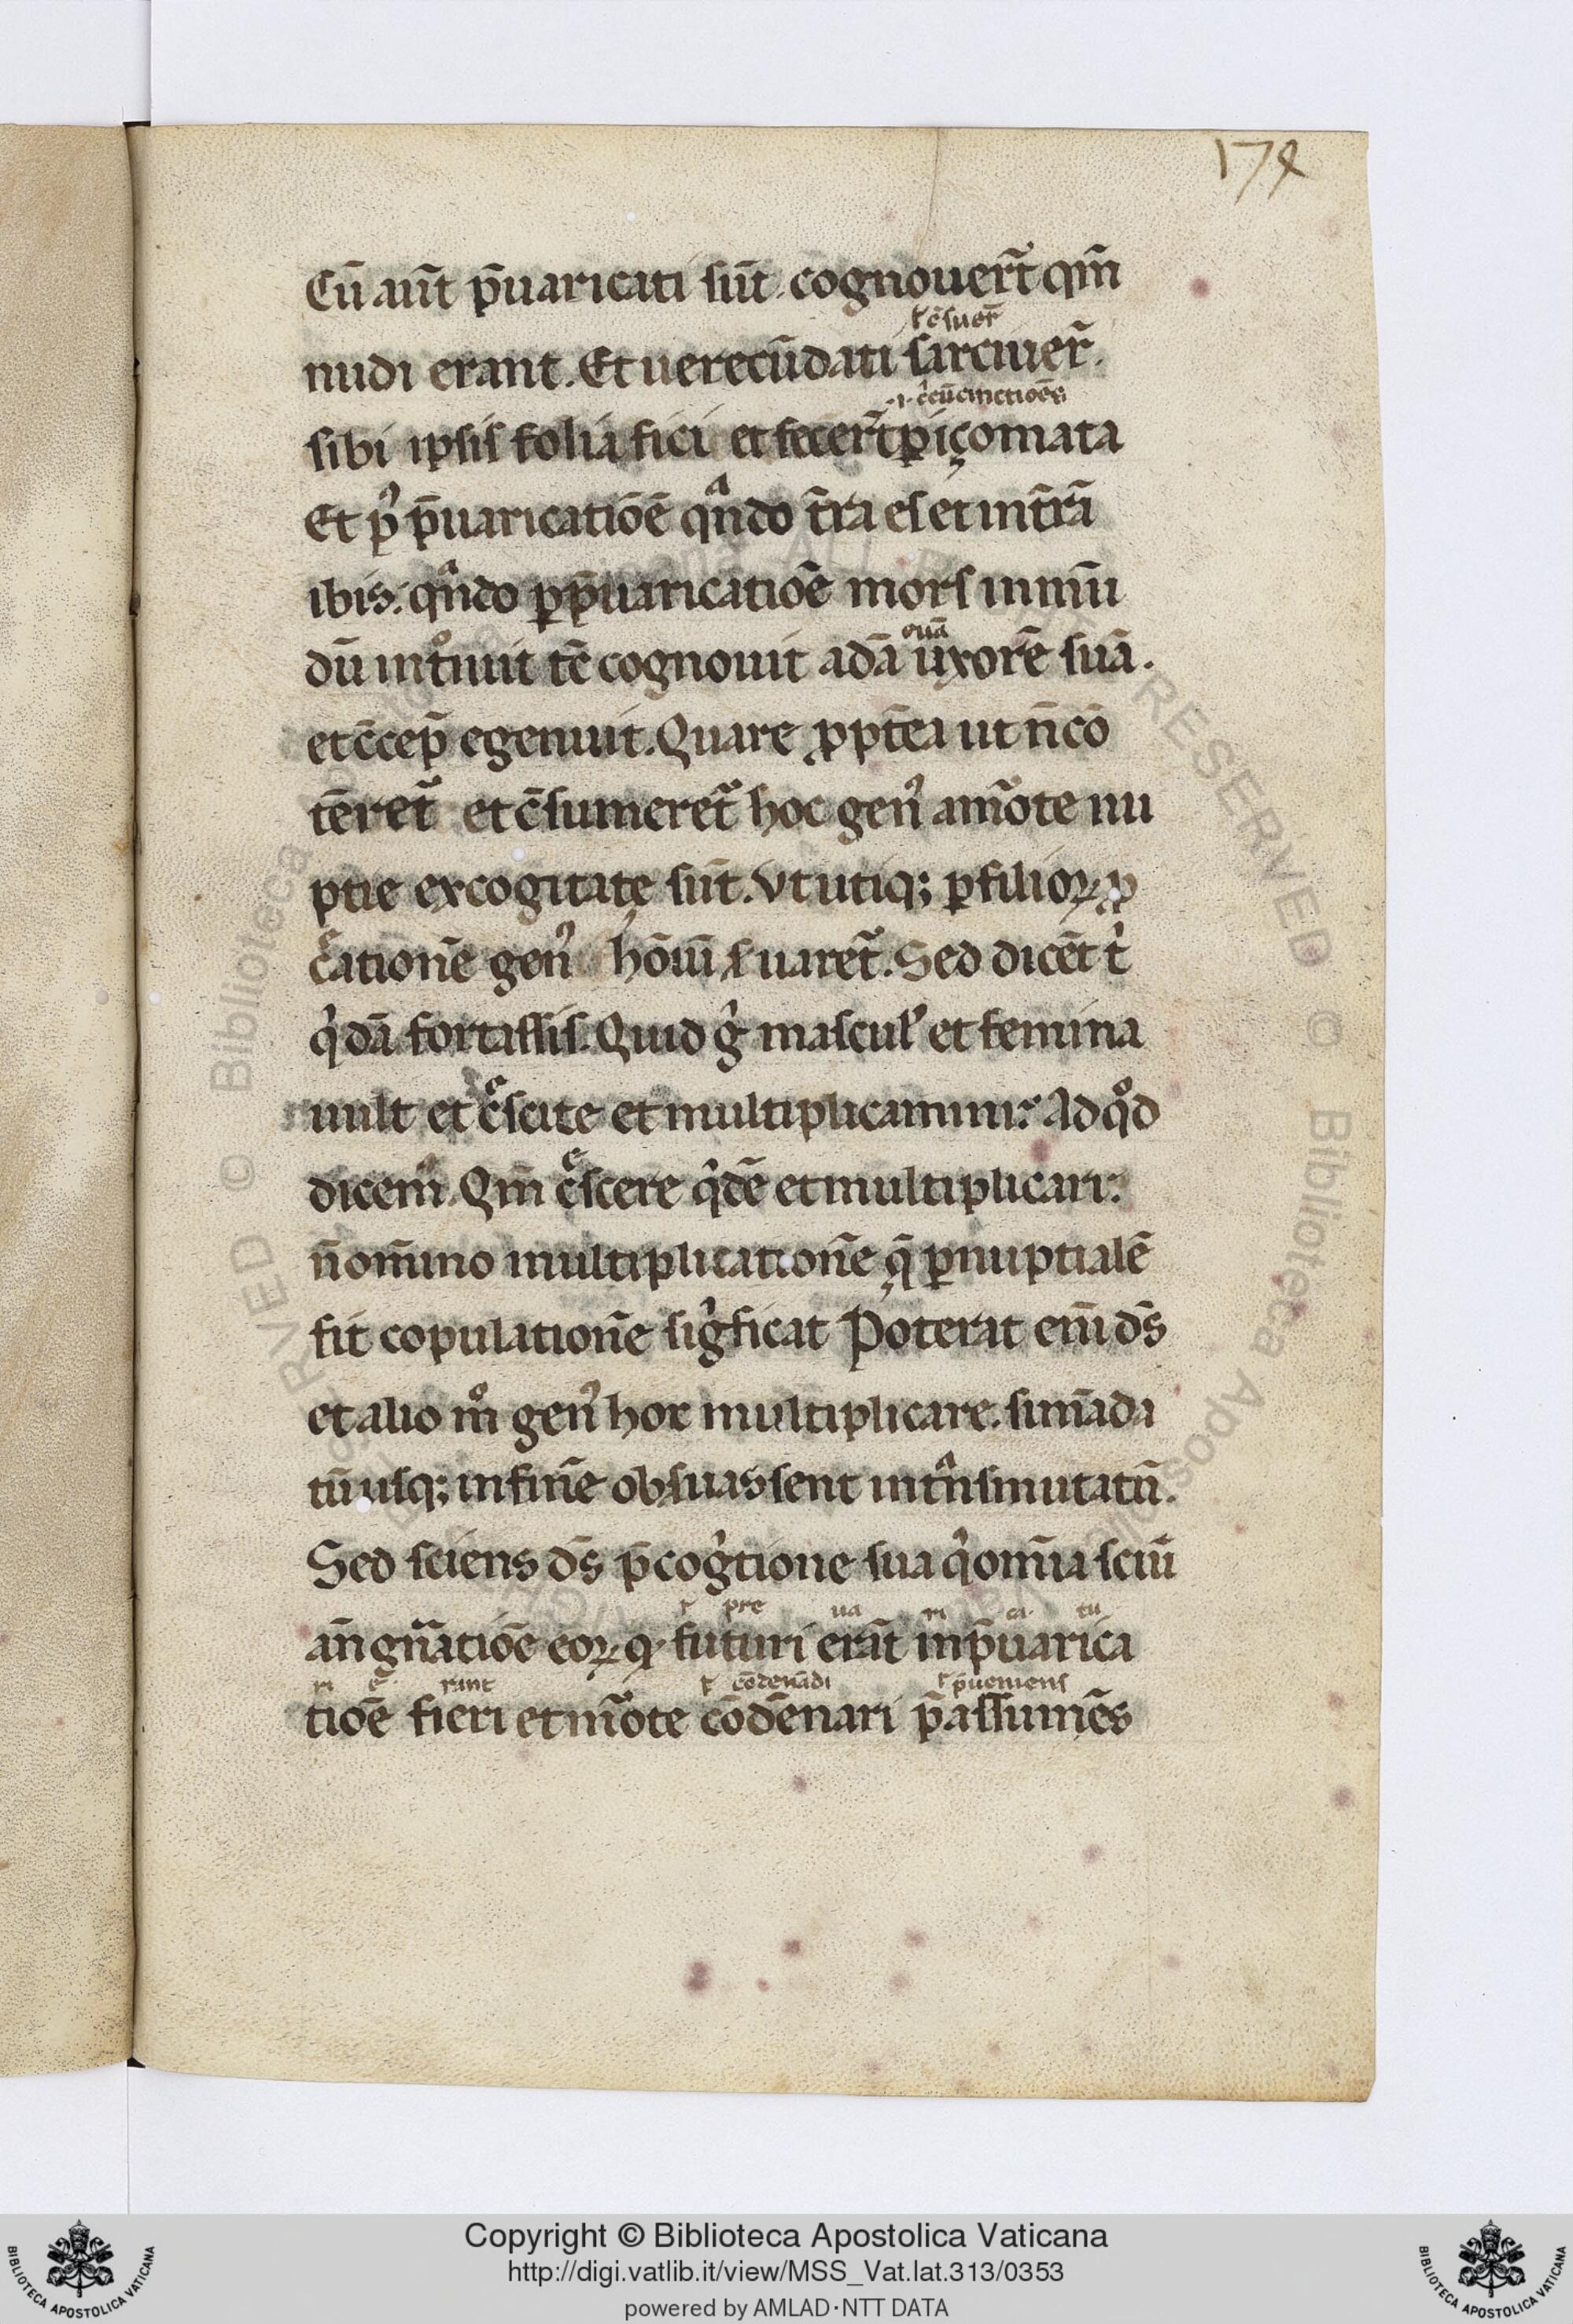 174
Cū aūt p̄uaricati sūt. cognouer̄t qm̄
ł ↄ̄suer̄
nudi erant. Et uerecūdati sarciuer̄.
.i. c̓cūcinctiōes
sibi ipsis folia fici et fecer̄t piçomata
Et p̓ p̄uaricatiōē qn̄do t̄ra es et in t̄rā
ibis: qn̄do p̱ p̄uaricatiōe mors in mū
ouā
dū int°iuit tē cognouit adā uxorē suā.
et ↄ̄cep̄ egenuit. Quare ꝓpt̄ea ut n̄ co
tēret̃ et ↄ̄sumeret̃ hoc gen̓ a mo̓te nu
ptie excogitate sūt. Vt utiq; ꝑ filioꝝ ꝓ
c̓ationē gen̓ hōiū ẜuaret̃. Sed dicēt t̓
q̓dā fortassis. Quid g̓ mascul̓ et femina
uult et c̓scite et multiplicamini: Ad q°d
dicem̓. Qm̄ c̓scere q̓dē et multiplicari:
n̄ om̄ino multiplicationē q̄ ꝑ nuptialē
fit copulationē sig̓ficat Poterat eni̅ ds̄
et alio m° gen̓ hoꝝ multiplicare. si mādа
tū usq; in finē obſuassent intn̄smutatū.
Sed sciens ds̄ p̄cog̓tione sua q̓ om̄ia sciu̅
ł pre ua ri ca tu
an̄ gn̄atiōe eoꝝ q̢ futuri erāt in p̄uarica
ri ē runt ł cōdenādi ł p̄ueniens
tiōē fieri et mo̓te cōdēnari p̄assumēs
Copyright © Biblioteca Apostolica Vaticana
http://digi.vatlib.it/view/MSS_Vat.lat.313/0353
powered by AMLAD·NTT DATA
BIBLIOTECA APOSTOLICA VATICANA
BIBLIOTECA APOSTOLICA VATICANA